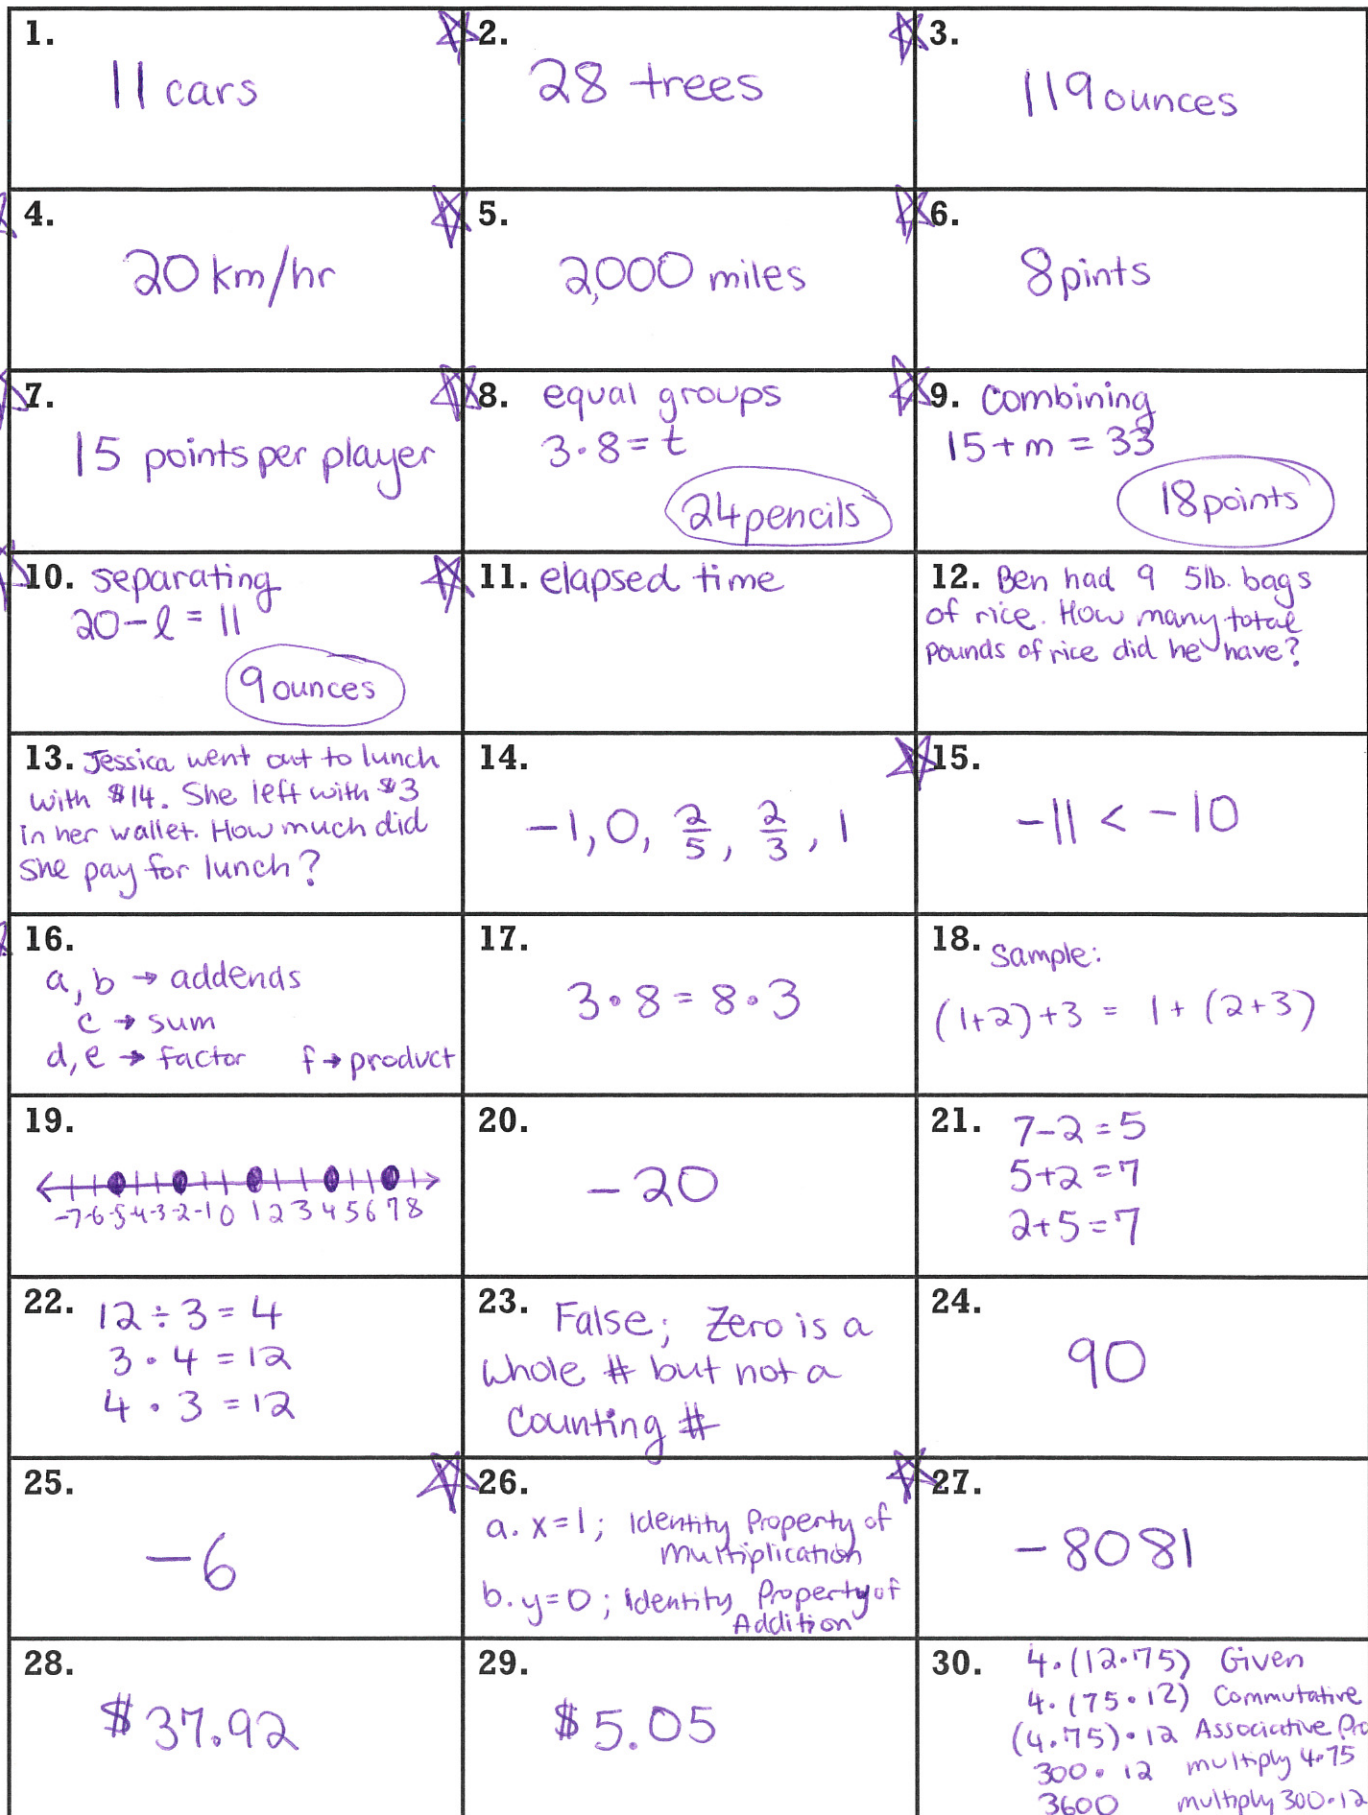 1.
11 cars
2.
28 trees
3.
119 ounces
4.
20 km/hr
5.
2,000 miles
6.
8 pints
7.
15 points per player
8. equal groups
3·8 = t
24 pencils
9. Combining
15 + m = 33
18 points
10. separating
20 - l = 11
9 ounces
11. elapsed time
12. Ben had 9 5lb. bags
of rice. How many total
pounds of rice did he have?
13. Jessica went out to lunch
with $14. She left with $3
in her wallet. How much did
she pay for lunch?
14.
-1, 0, 2/5, 2/3, 1
15.
-11 < -10
16.
a, b → addends
c → sum
d, e → factor f → product
17.
3·8 = 8·3
18. Sample:
(1+2)+3 = 1+(2+3)
19.
-7 -6 -5 -4 -3 -2 -1 0 1 2 3 4 5 6 7 8
20.
-20
21. 7-2=5
5+2=7
2+5=7
22. 12÷3=4
3·4=12
4·3=12
23. False; Zero is a
whole # but not a
Counting #
24.
90
25.
-6
26.
a. x=1; Identity Property of
Multiplication
b. y=0; Identity Property of
Addition
27.
-8081
28.
$37.92
29.
$5.05
30. 4·(12·75) Given
4·(75·12) Commutative
(4·75)·12 Associative Pro
300·12 multiply 4·75
3600 multiply 300·12